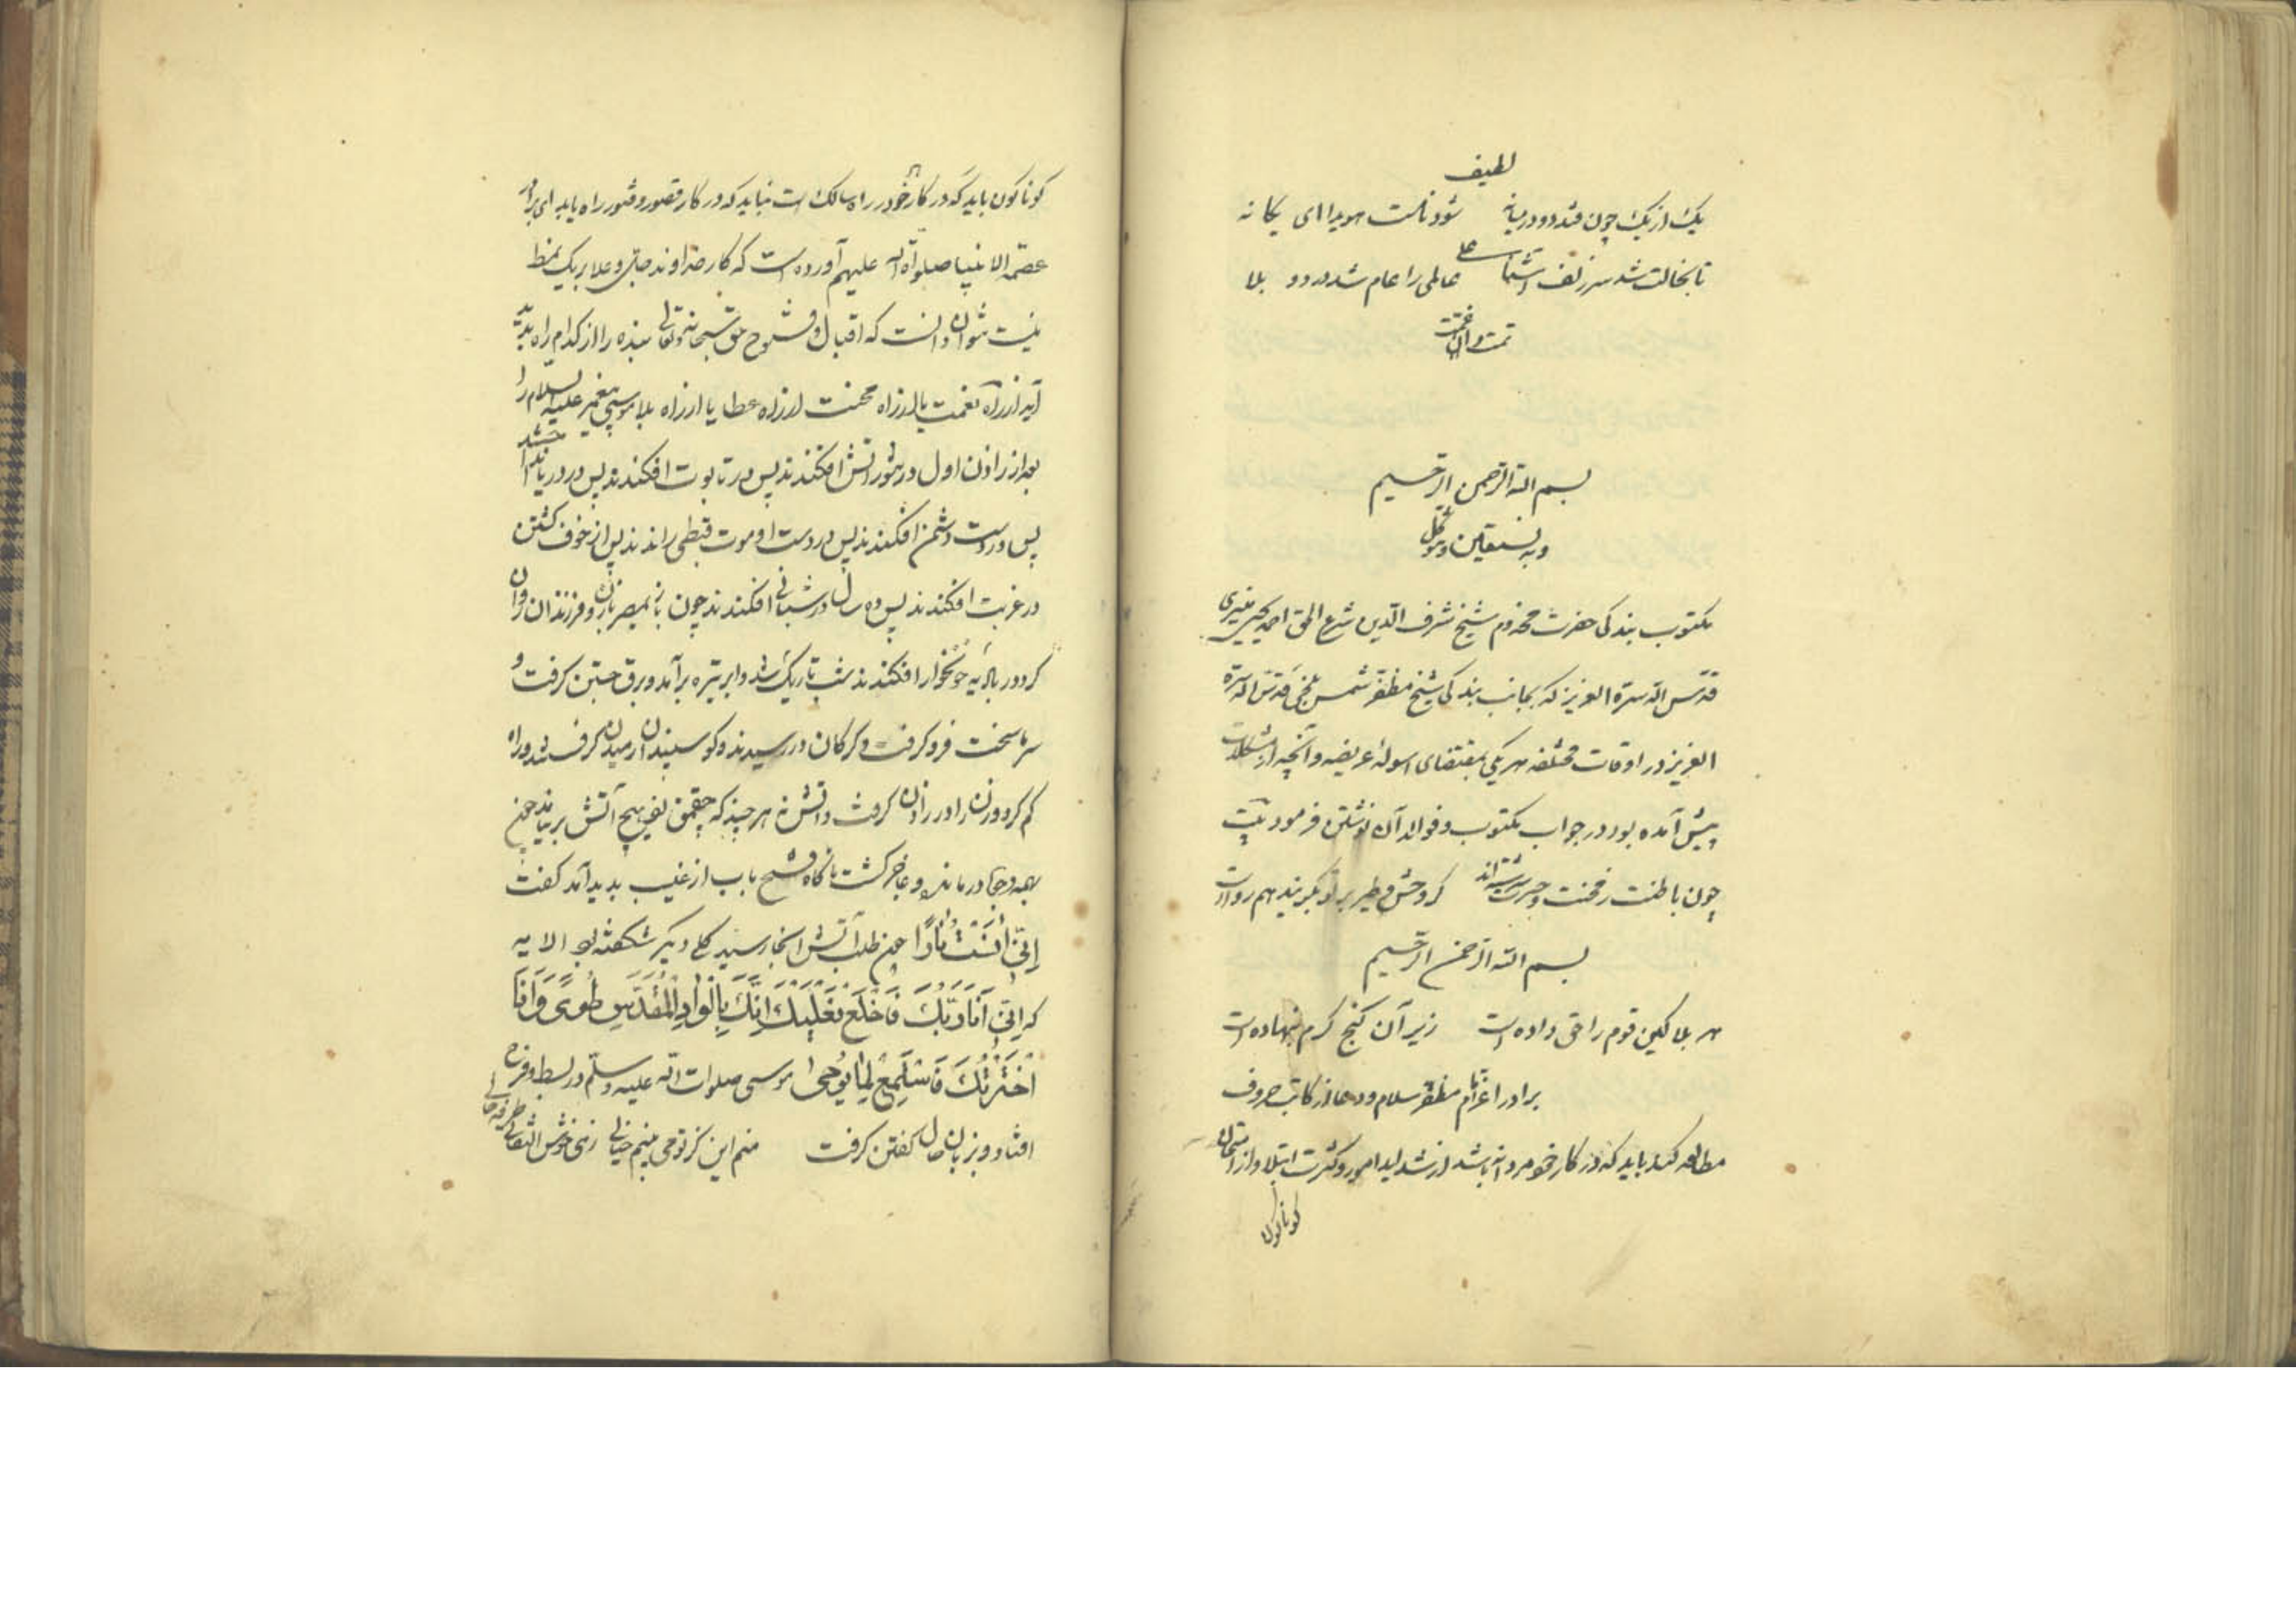 لطیف
یک از یک چون فتد دو درمیانه شود ثالث هویدا ای یگانه
تا بخالت شد سر زلف آشنا عالمی را عام شد درد و بلا
تمت
بسم الله الرحمن الرحیم
وبه نستعین و نتوکل
مکتوب بندگی حضرت مخدوم شیخ شرف الدین شرع الحق احمد یحیی منیری
قدس الله سره العزیز که بجانب بندگی شیخ مظفر شمس بلخی قدس الله سره
العزیز در اوقات مختلفه هر یکی بمقتضای اسوله عریضه و آنچه از مشکلات
پیش آمده بود در جواب مکتوب و فوائد آن نوشتن فرمود بیت
چون باطنت ز محنت و حیرت سرشته اند گر وحش و طیر بر تو بگریند هم رواست
بسم الله الرحمن الرحیم
هر بلا کین قوم را حق داده است زیر آن گنج کرم نهاده است
برادر اعزام مظفر سلام و دعا از کاتب حروف
مطالعه کند باید که در کار خود مردانه باشد از شداید امور و کثرت ابتلا و از امتحان
کوناکون
کوناکون باید که در کار خود در راه سالک است نباید که در کار قصور و فتور راه یابد ای برادر
عصمة الانبیا صلوات الله علیهم آورده است که کار خداوند جل وعلا بریک نمط
نیست نتوان دانست که اقبال و فتوح حق سبحانه وتعالی بنده را از کدام راه پدید
آید از راه نعمت یا از راه محنت از راه عطا یا از راه بلا موسی پیغمبر علیه السلام را
بعد از زادن اول در تنور آتش افکندند پس در تابوت افکندند پس در دریا انداختند
پس در دست دشمن افکندند پس در دست او موت قبطی راندند پس از خوف کشتن
در غربت افکندند پس ده سال در شبانی افکندند چون باز بمصر با زن و فرزندان روان
کرد در بادیه خونخوار افکندند شب تاریک شد و ابر تیره برآمد و برق جستن کرفت و
سرما سخت فرو کرفت و کرکان در رسیدند و کوسپندان رمیدن کرفتند و راه
کم کرد و زن را درد زادن کرفت و آتش نه هر چند که چقمق هیچ آتش بر نیامد چون
بهمه وجه درماند و عاجز کشت ناکاه فتح باب از غیب پدید آمد کفت
اِنّی آنَستُ نارًا چون طلب آتش آنجا رسید کلی دیکر شکفته بود الایه
که اِنّی اَنَا رَبُّکَ فَاخْلَعْ نَعْلَیْکَ اِنَّکَ بِالْوادِ الْمُقَدَّسِ طُوًی وَاَنَا
اخْتَرْتُکَ فَاسْتَمِعْ لِمَا یُوحٰی موسی صلوات الله علیه وسلم در بسط و فرح
افتاد و بزبان حال کفتن کرفت منم این کز تو می بینم خیالی زهی خوش اتفاقی طرفه حالی